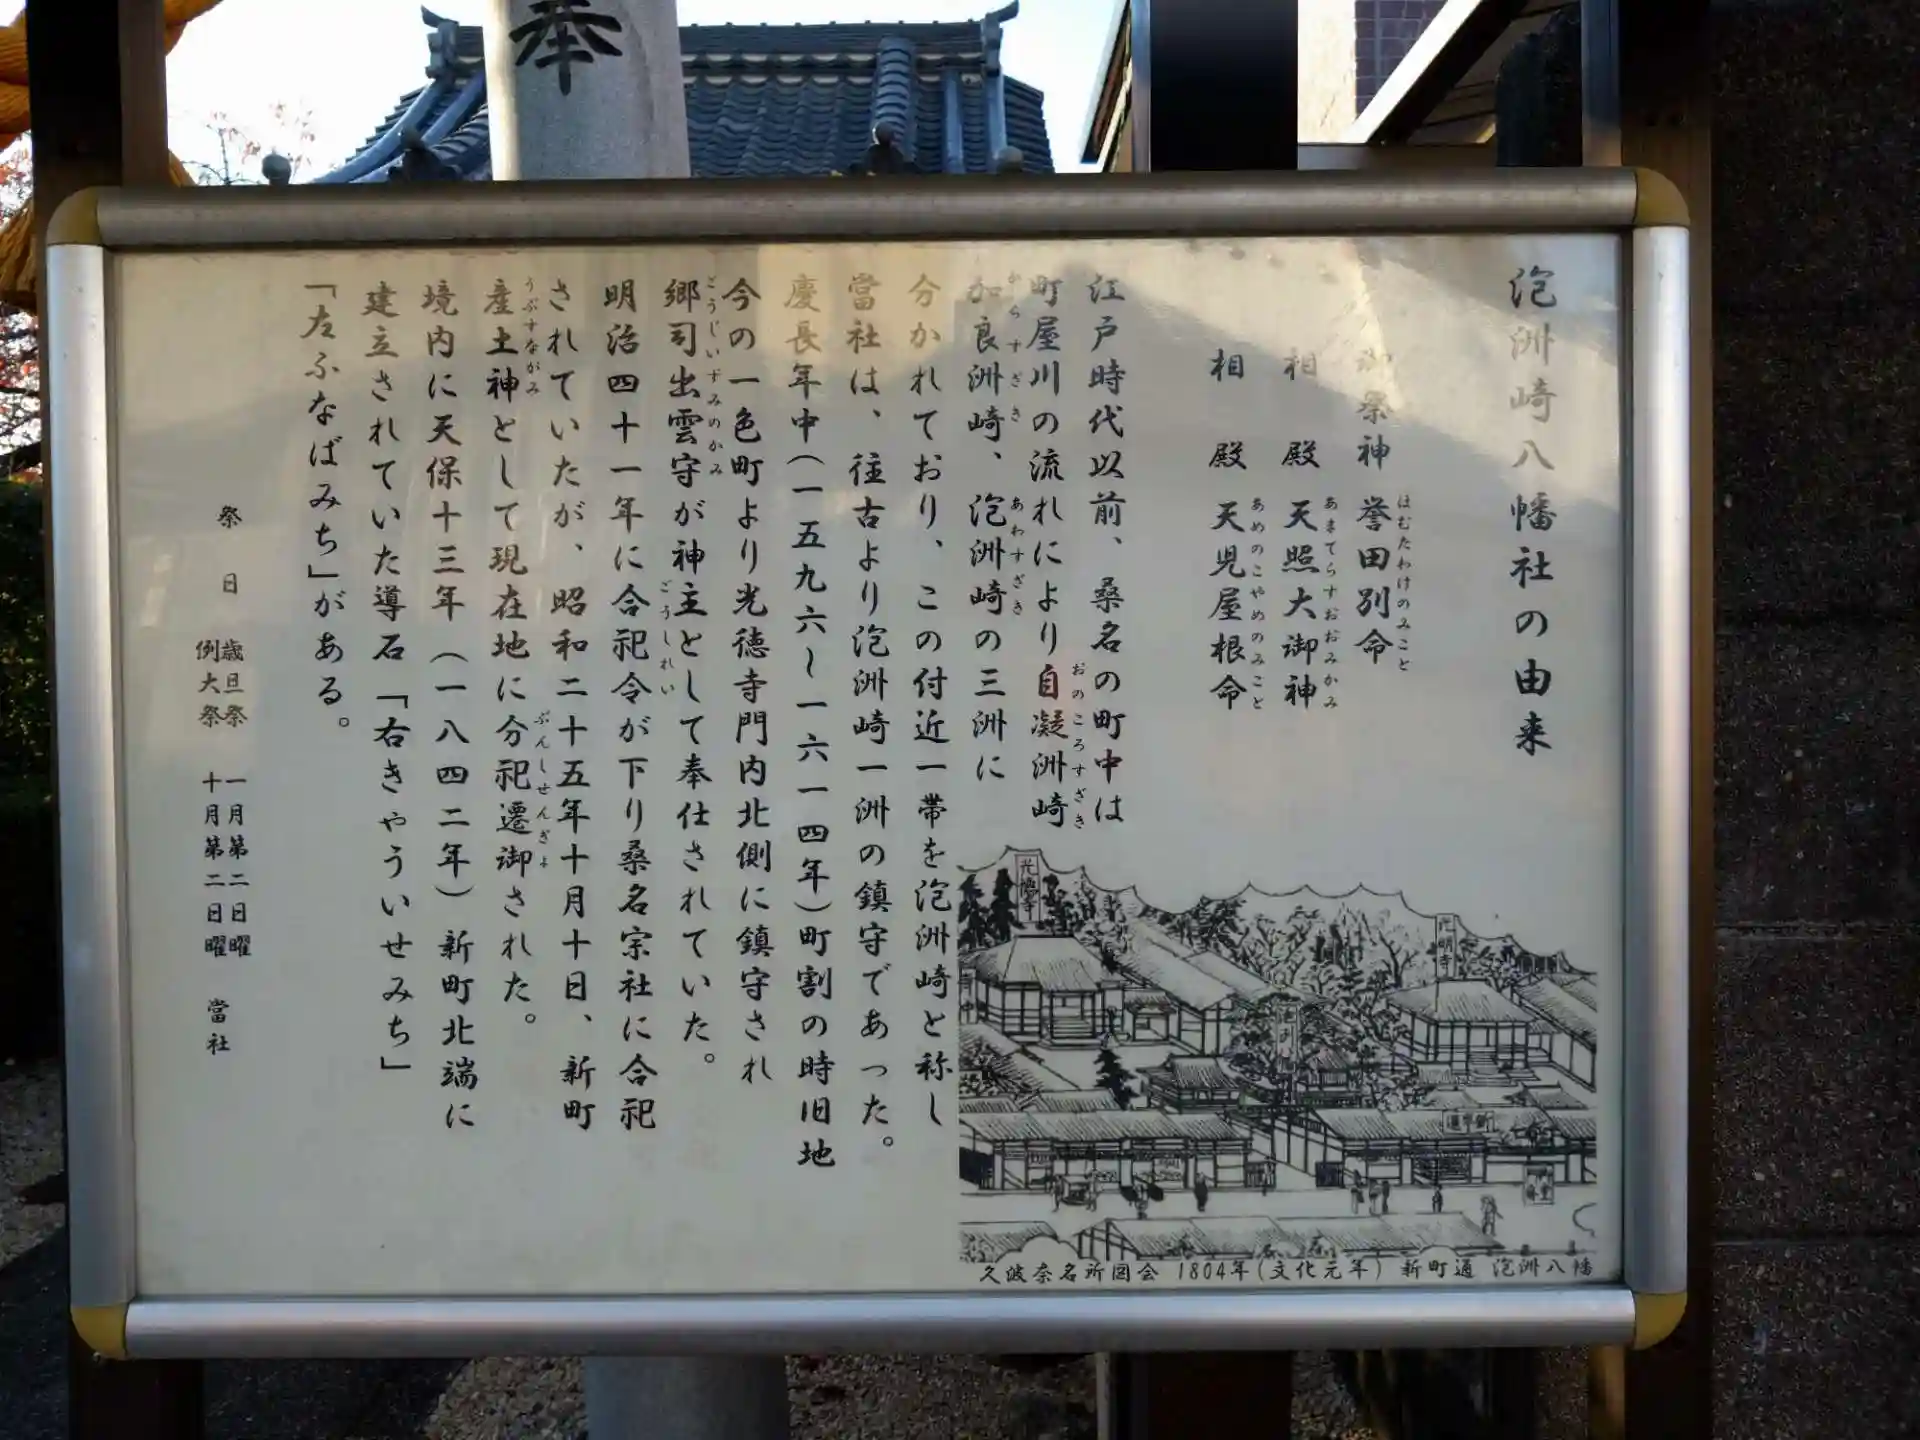 奉
泡洲崎八幡社の由来
御祭神 誉田別命
ほむたわけのみこと
相殿 天照大御神
あまてらすおおみかみ
相殿 天児屋根命
あめのこやめのみこと
江戸時代以前、桑名の町中は
町屋川の流れにより自凝洲崎
おのころすざき
加良洲崎、泡洲崎の三洲に
からすざき あわすざき
分かれており、この付近一帯を泡洲崎と称し
當社は、往古より泡洲崎一洲の鎮守であった。
慶長年中(一五九六〜一六一四年)町割の時旧地
今の一色町より光徳寺門内北側に鎮守され
郷司出雲守が神主として奉仕されていた。
ごうじいずみのかみ
明治四十一年に合祀令が下り桑名宗社に合祀
ごうしれい
されていたが、昭和二十五年十月十日、新町
産土神として現在地に分祀遷御された。
うぶすながみ ぶんしせんぎょ
境内に天保十三年(一八四二年)新町北端に
建立されていた導石「右きやういせみち」
「左ふなばみち」がある。
祭日 歳旦祭 一月第二日曜
例大祭 十月第二日曜
當社
光徳寺
光明寺
久波奈名所図会 1804年(文化元年) 新町通 泡洲八幡